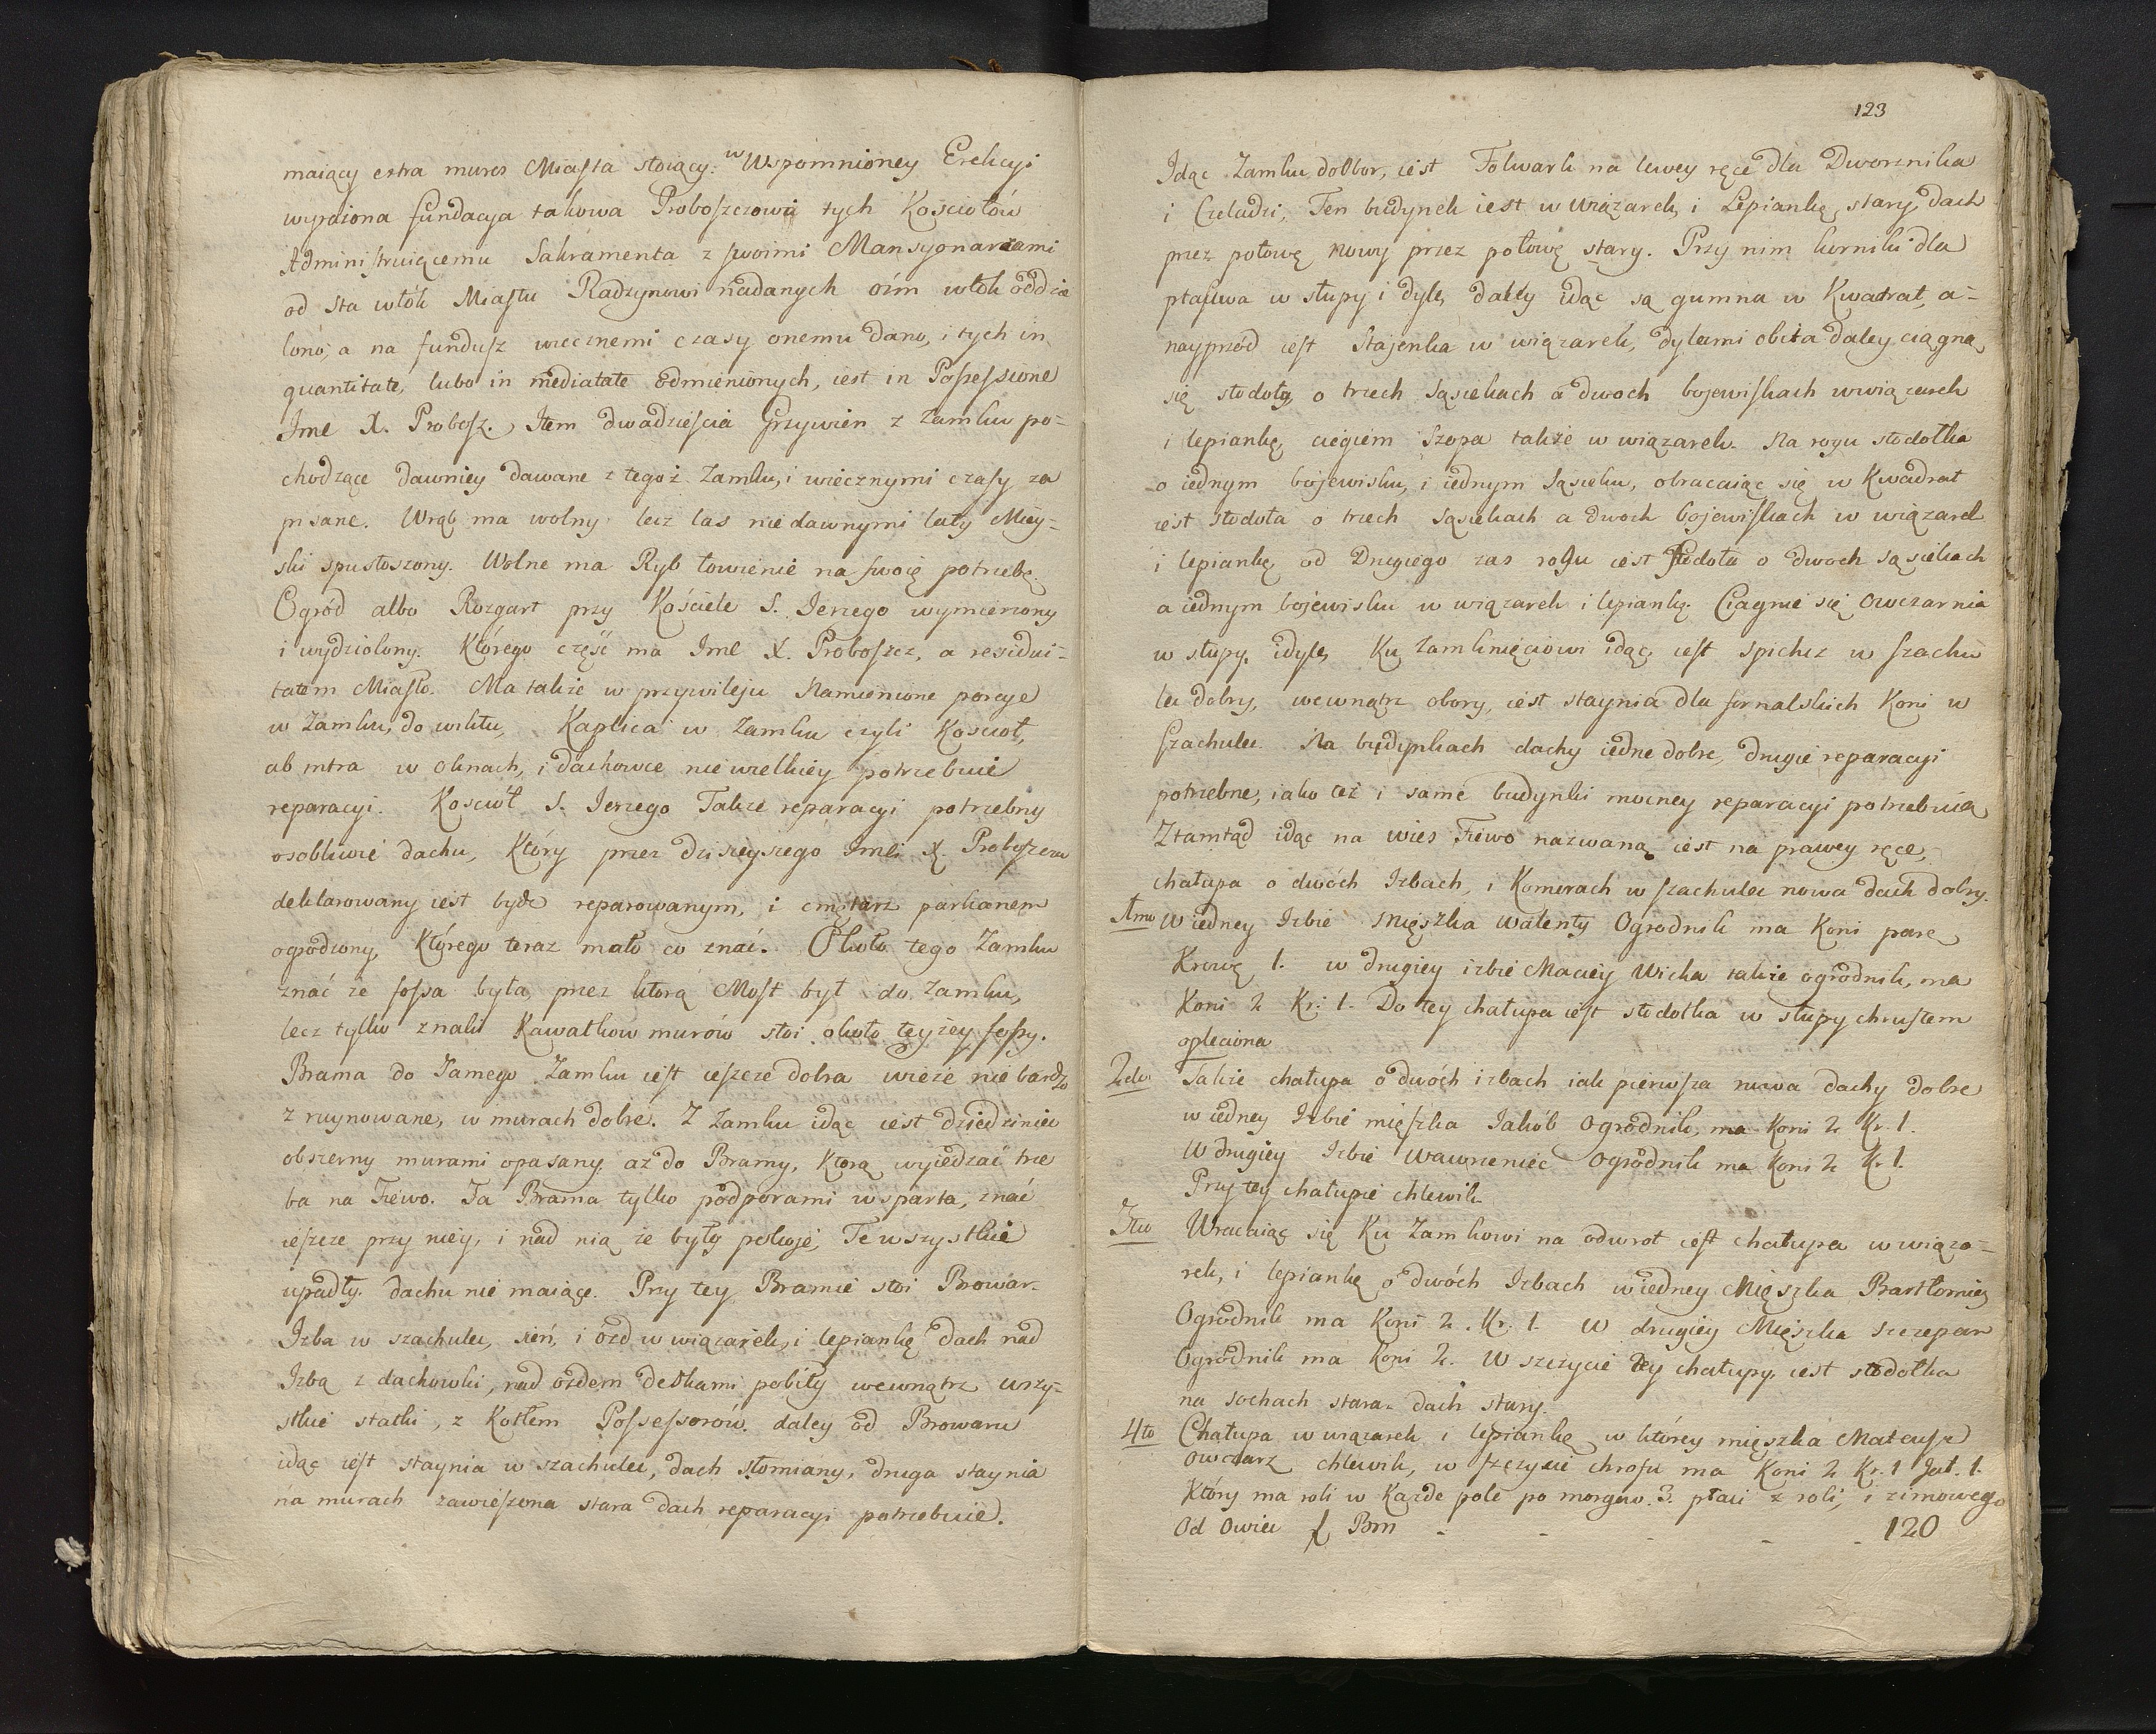 maiący extra muros Miasta stoiący: w Wspomnioney Erekcyi
wyrażona fundacya takowa Proboszczowi tych Kościołów
Administruiącemu Sakramenta z swoimi Mansyonarzami
od sta włók Miastu Radzynowi nadanych ośm włók oddzie
lono, a na fundusz wiecznemi czasy onemu dano, i tych in
quantitate, lubo in medietate odmienionych, iest in Possessione
Jme X. Probosz. Item dwadzieścia Grzywien z Zamku po-
chodzące dawniey dawane z tegoż Zamku, i wiecznymi czasy za
pisane. Wrąb ma wolny lecz las nie dawnymi laty Miey-
ski spustoszony. Wolne ma Ryb łowienie na swoię potrzebę.
Ogród albo Rozgart przy Kościele S. Jerzego wymierzony
i wydzielony. Którego część ma Jme X. Proboszcz, a residui-
tatem Miasto. Ma także w przywileju Namienione porcye
w Zamku, do wiktu, Kaplica w Zamku czyli Kościoł,
ab intra w oknach, i dachowce nie wielkiéy potrzebuie
reparacyi. Kościół S. Jerzego Także reparacyi potrzebny
osobliwie dachu, Który przez dzisieyszego Jmci X. Proboszcza
deklarowany iest bydź reparowanym, i cmętarz parkanem
ogrodzony, Którego teraz mało co znać. Około tego Zamku
znać że fossa była, przez którą Most był do Zamku,
lecz tylko znaki Kawałkow murów stoi około teyżey fossy.
Brama do Samego Zamku iest ieszcze dobra wieże nie bardzo
zruynowane, w murach dobre. Z Zamku idąc iest dziedziniec
obszerny murami opasany aż do Bramy, Którą wyiedzać trze
ba na Frewo. Ta Brama tylko podporami wsparta, znać
ieszcze przy niey, i nad nią że były pokoje, Te wszystkie
upadły dachu nie maiące. Przy tey Bramie stoi Browar.
Izba w szachulec, sień, i ozd w wiązarek, i lepiankę dach nad
Izbą z dachowki, nad ozdem deskami pobity wewnątrz wszy-
stkie statki, z Kotłem Possessorów. daley od Browaru
idąc iest staynia w szachulec, dach słomiany, druga staynia
na murach zawieszona stara dach reparacyi potrzebuie.
123
Idąc Zamku do Obor, iest Folwark na lewey ręce dla Dwornika
i Czeladzi, Ten budynek iest w wiązarek, i Lepiankę stary, dach
przez połowę nowy przez połowę stary. Przy nim kurniki dla
ptastwa w słupy i dyle, daley idąc są gumna w Kwadrat, a-
nayprzód iest Stajenka w wiązarek, dylami obita daley ciągną
się stodoły o trzech sąsiekach a dwoch bojewiskach w wiązarek
i lepiankę, ciegiem Szopa także w wiązarek. Na rogu stodołka
o iednym bojewisku, i iednym Sąsieku, obracaiąc się w Kwadrat
iest stodoła o trzech sąsiekach a dwoch bojewiskach w wiązarek
i lepiankę od Drugiego zas rogu iest stodoła o dwoch sąsiekach
a iednym bojewisku w wiązarek i lepiankę. Ciągnie się Owczarnia
w słupy, i dyle, Ku Zamknięciowi idąc, iest Spichrz w szachu
lec dobry, wewnątrz obory, iest staynia dla fornalskich Koni w
szachulec. Na budynkach dachy iedne dobre, drugie reparacyi
potrzebne, iako też i same budynki mocney reparacyi potrzebuią
Ztamtąd idąc na wies Frewo nazwaną iest na prawey ręce,
chałupa o dwóch Izbach, i Komorach w szachulec nowa dach dobry.
1mo w iedney Izbie mięszka Walenty Ogrodnik ma Koni parę
Krowę 1. w drugiey izbie Maciey Wicka także ogrodnik, ma
Koni 2 Kr: 1. Do tey chałupa iest stodołka w słupy chrustem
opleciona
2do Także chałupa o dwóch izbach iak pierwsza nowa dachy dobre
w iedney Izbie mięszka Jakób Ogrodnik, ma Koni 2 Kr. 1.
W drugiey Izbie Wawrzeniec Ogrodnik ma Koni 2 Kr. 1.
Przy tey chałupie chlewik
3tio Wracaiąc się Ku Zamkowi na odwrot iest chałupa w wiąza-
rek, i lepiankę o dwóch Izbach w iedney Mięszka Bartłomiey
Ogrodnik ma Koni 2. Kr. 1. W drugiey Mięszka Szczepan
Ogrodnik ma Koni 2. W szczycie tey chałupy, iest stodołka
na sochach stara dach stary.
4to Chałupa w wiązarek i lepiankę w którey mięszka Mateusz
owczarz chlewik, w szczycie chrostu ma Koni 2 Kr. 1 Jał. 1.
Który ma roli w Każde pole po morgow. 3. płaci z roli, i zimowego
Od Owiec f Prn - - - - - 120